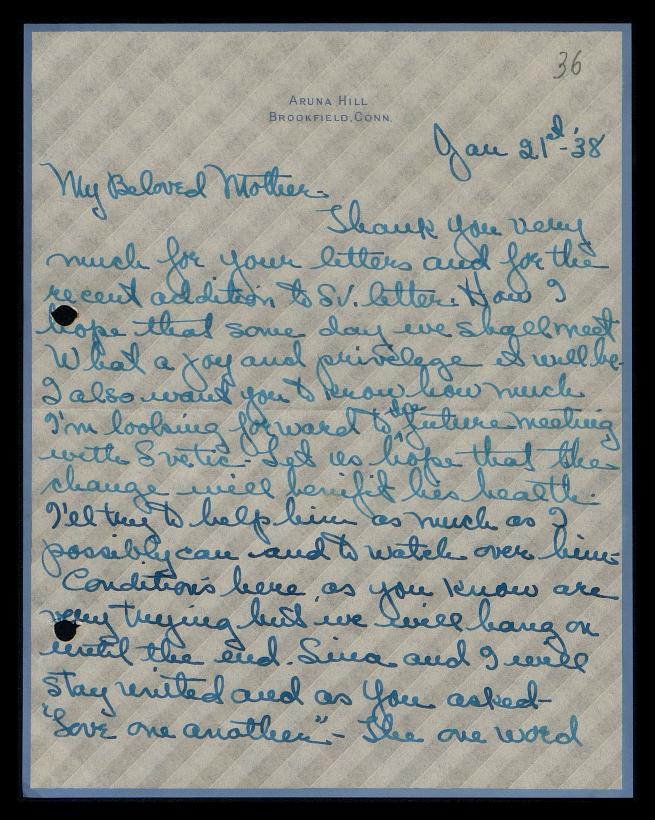 36
ARUNA HILL
BROOKFIELD, CONN.
Jan 21st-'38
My Beloved Mother-
Thank you very
much for your letters and for the
recent addition to SV. letter. How I
hope that some day we shall meet
What a joy and privilege it will be-
I also want you to know how much
I'm looking forward to the future meeting
with Svetic- Let us hope that the
change will benifit his health.
I'll try to help him as much as I
possibly can and to watch over him-
Conditions here, as you know are
very trying but we will hang on
until the end. Sina and I will
stay united and as you asked-
"Love one another"- The one word